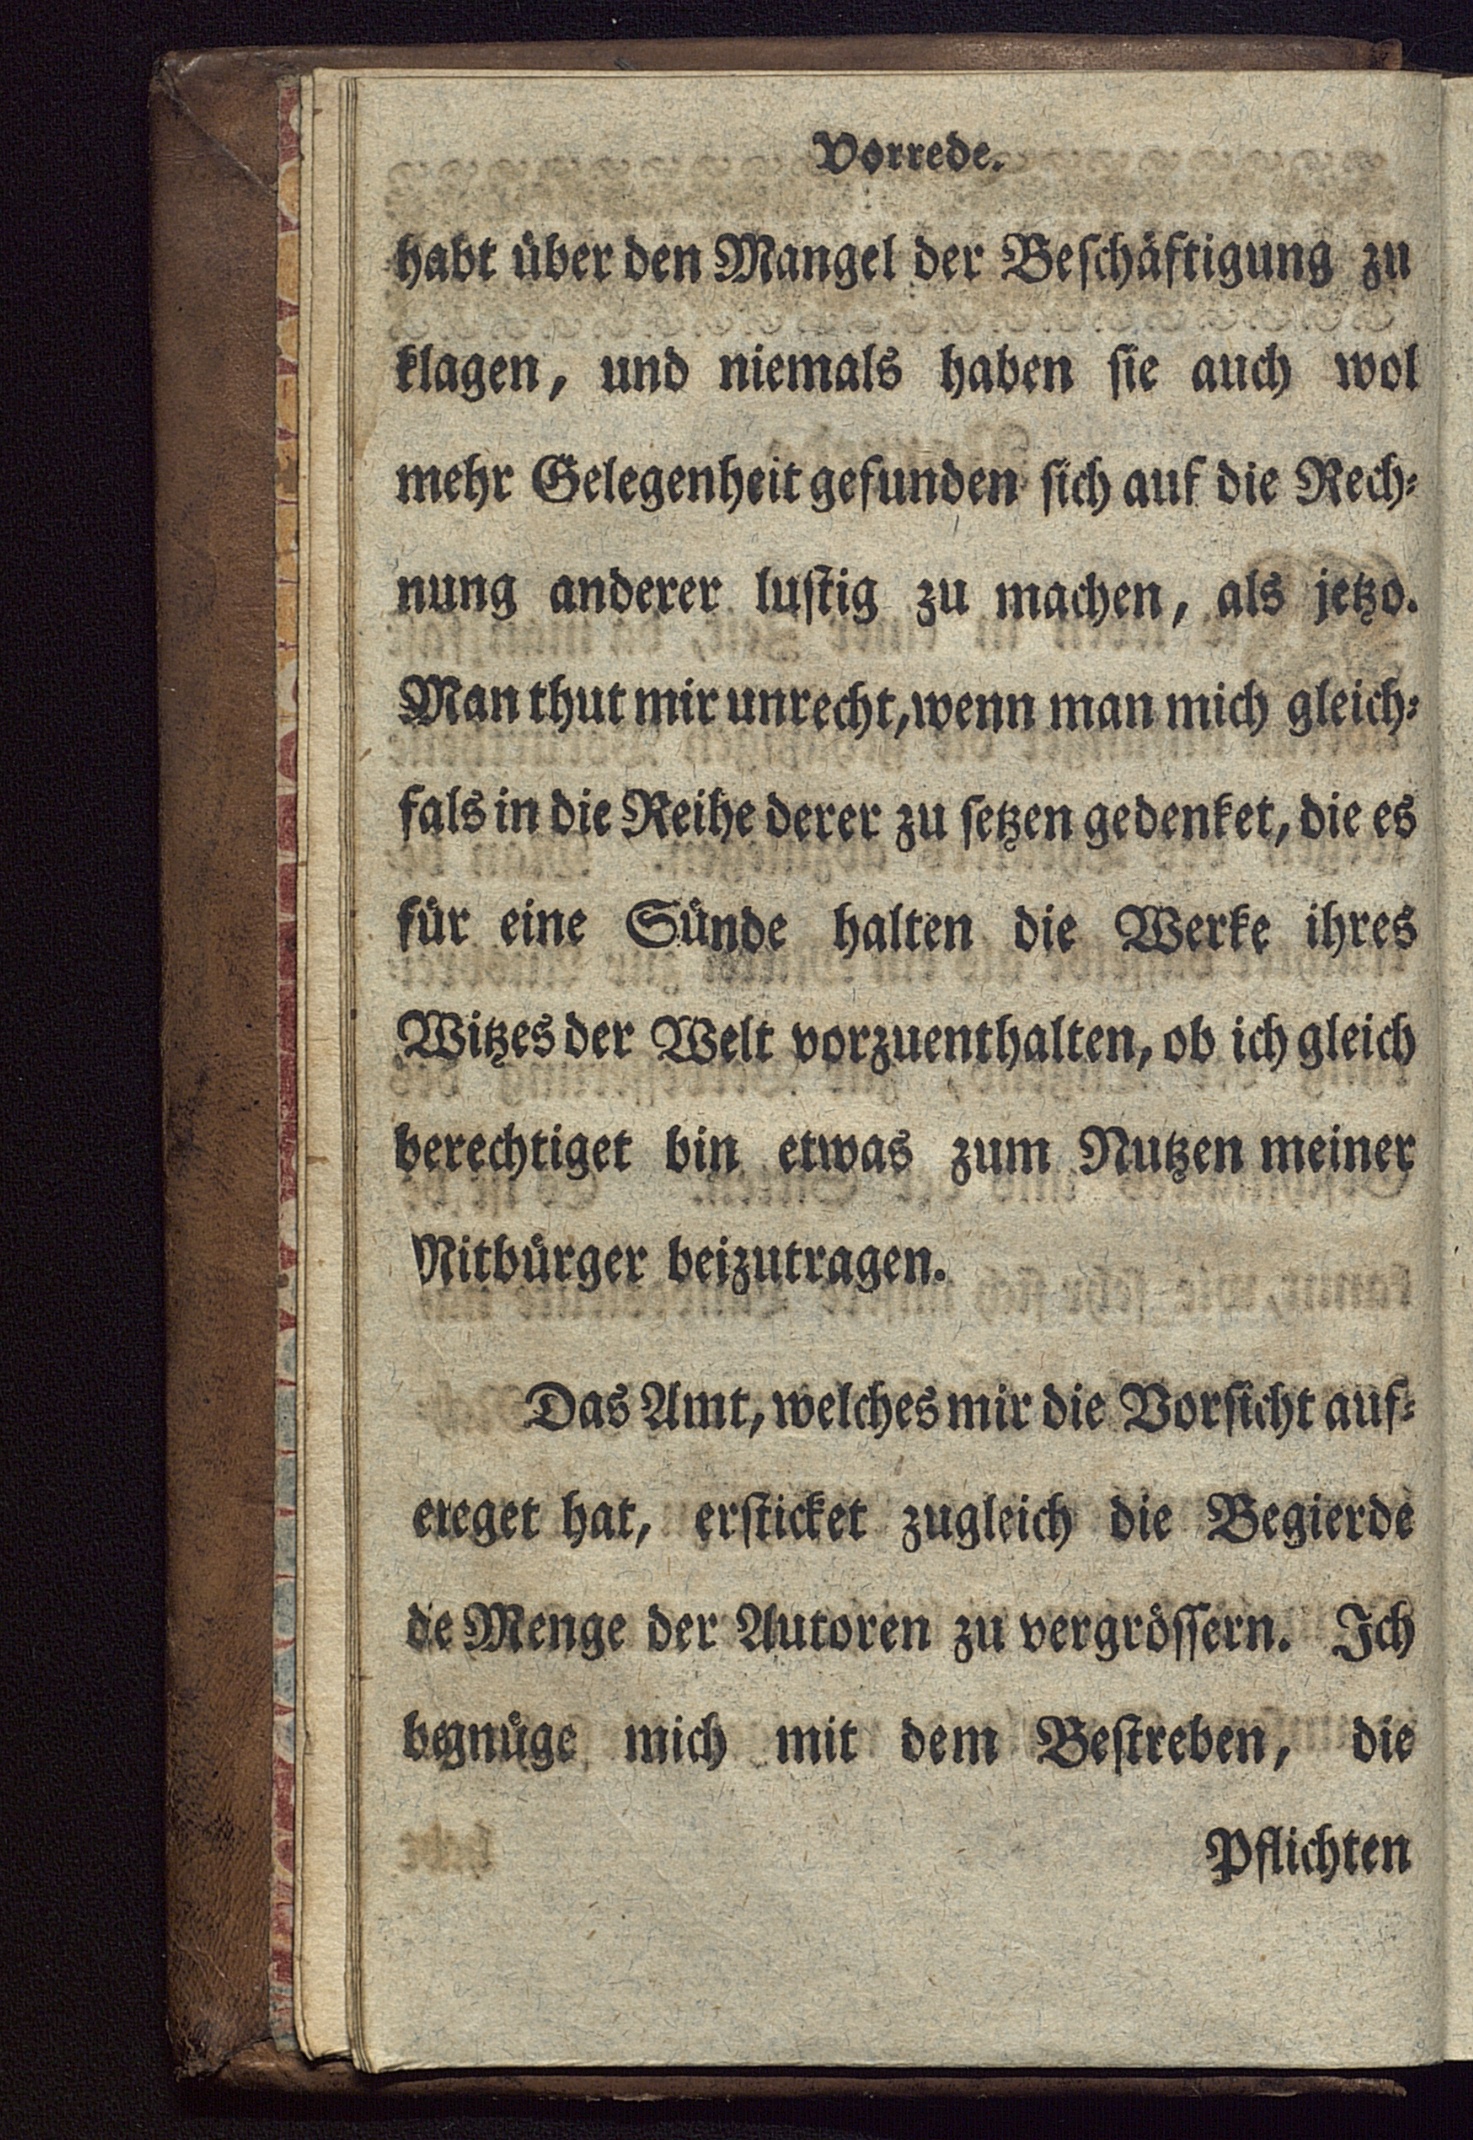 Vorrede.
habt über den Mangel der Beschäftigung zu
klagen, und niemals haben sie auch wol
mehr Gelegenheit gefunden sich auf die Rech-
nung anderer lustig zu machen, als jetzo.
Man thut mir unrecht, wenn man mich gleich-
fals in die Reihe derer zu setzen gedenket, die es
für eine Sünde halten die Werke ihres
Witzes der Welt vorzuenthalten, ob ich gleich
berechtiget bin etwas zum Nutzen meiner
Mitbürger beizutragen.
Das Amt, welches mir die Vorsicht auf-
ereget hat, ersticket zugleich die Begierde
de Menge der Autoren zu vergrössern. Ich
begnüge mich mit dem Bestreben, die
Pflichten